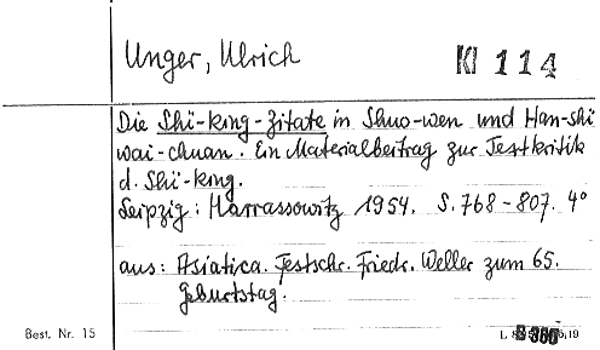 Unger, Ulrich
Kl 114
Die Shï-king-Zitate in Shuo-wen und Han-shi
wai-chuan. Ein Materialbeitrag zur Textkritik
d. Shï-king.
Leipzig: Harrassowitz 1954. S. 768-807. 4°
aus: Asiatica. Festschr. Friedr. Weller zum 65.
Geburtstag.
Best. Nr. 15